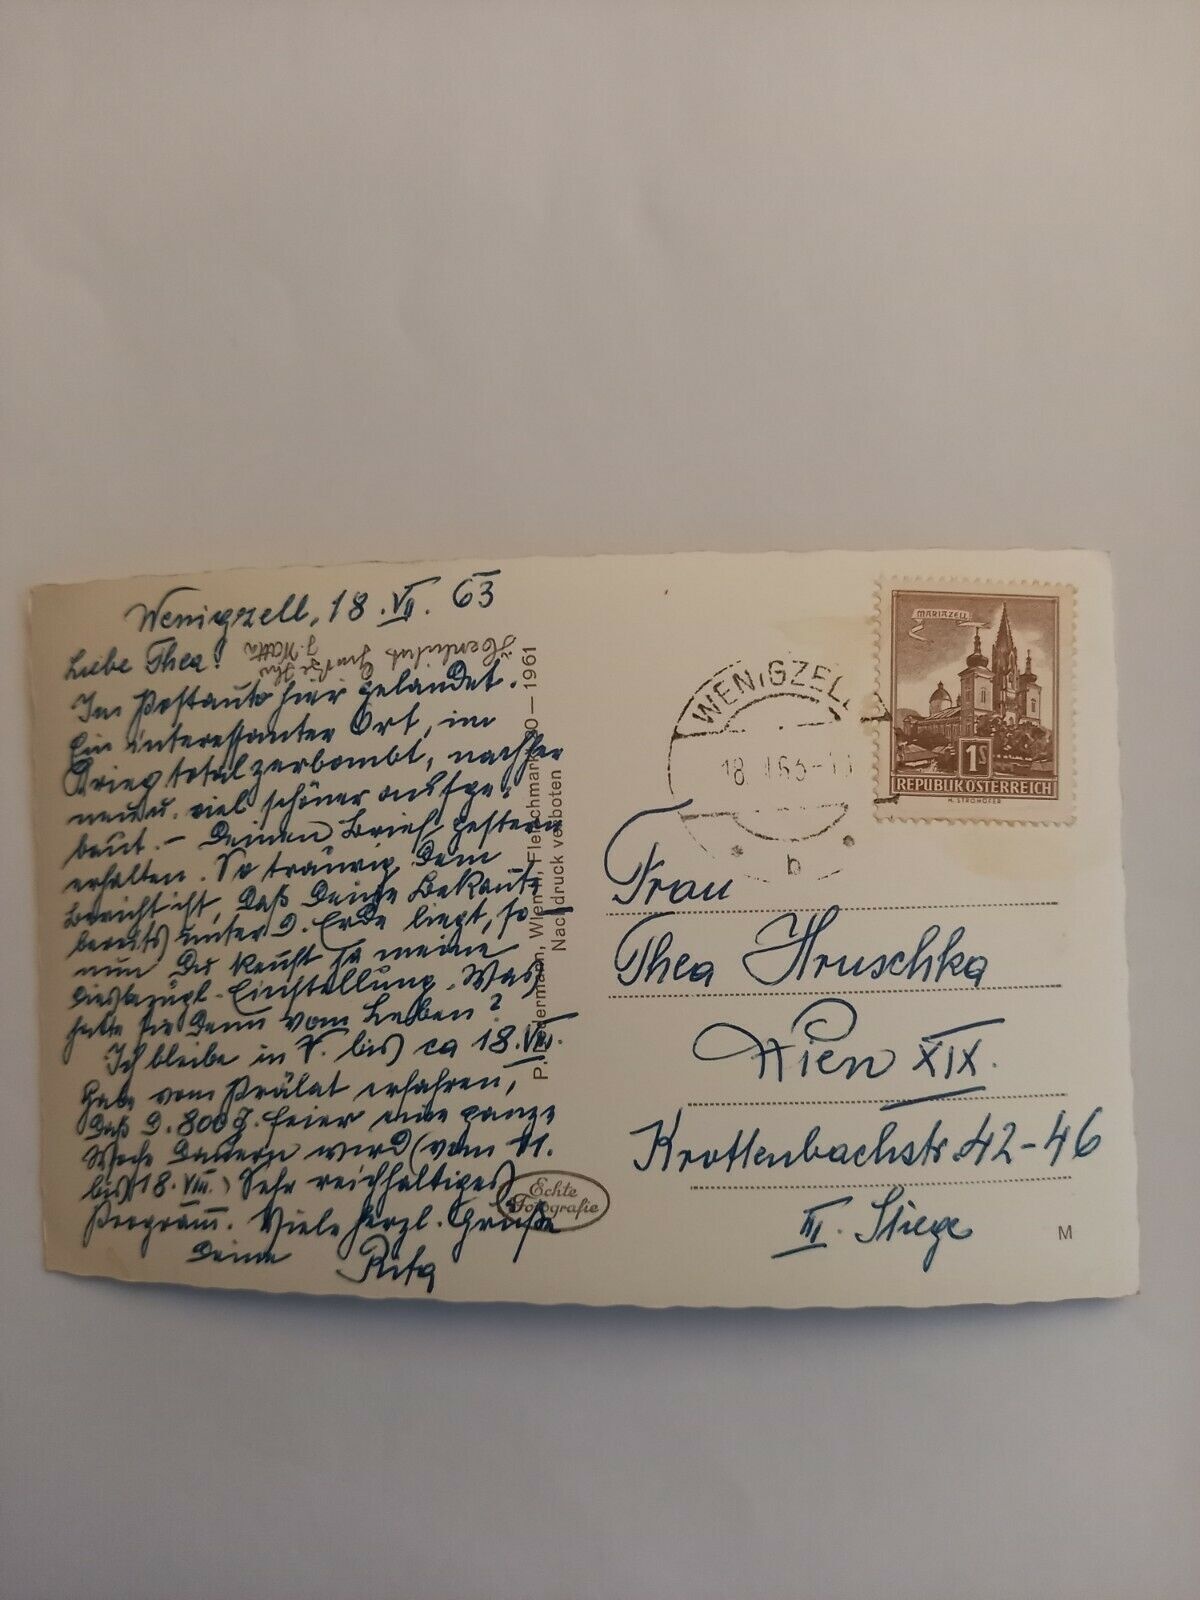 Wenigzell, 18. VII. 63
Liebe Thea!
Im Postauto hier gelandet.
Ein interessanter Ort, im
Krieg total zerbombt, nachher
neu u. viel schöner aufge-
baut. - Deinen Brief gestern
erhalten. So traurig dem
Bericht ist, daß Deine Bekannte
bereits unter d. Erde liegt, so
nun Du kennst ja meine
diesbezügl. Einstellung. Was
hatte sie denn vom Leben?
Ich bleibe in V. bis ca 18. VIII.
Habe vom Prälat erfahren,
daß d. 800 J. feier eine ganze
Woche dauern wird (vom 11.
bis 18. VIII.) Sehr reichhaltiges
Programm. Viele herzl. Grüße
Deine Rita
P. Ledermann, Wien I, Fleischmarkt 20 — 1961
Nachdruck verboten
Echte
Fotografie
WENIGZELL
18. 63-1
b
MARIAZELL
1S
REPUBLIK ÖSTERREICH
H. STROHOFER
Frau
Thea Hruschka
Wien XIX.
Krottenbachstr. 42-46
III. Stiege
M